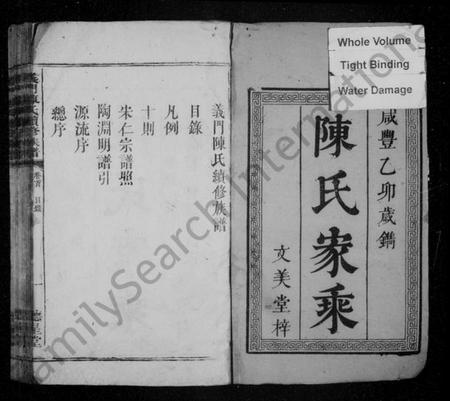 Whole Volume
Tight Binding
Water Damage
咸豐乙卯歲鐫
陳氏家乘
文美堂梓
義門陳氏續修族譜
目錄
凡例
十則
宋仁宗譜照
陶淵明譜引
源流序
總序
卷首 目錄
FamilySearch International